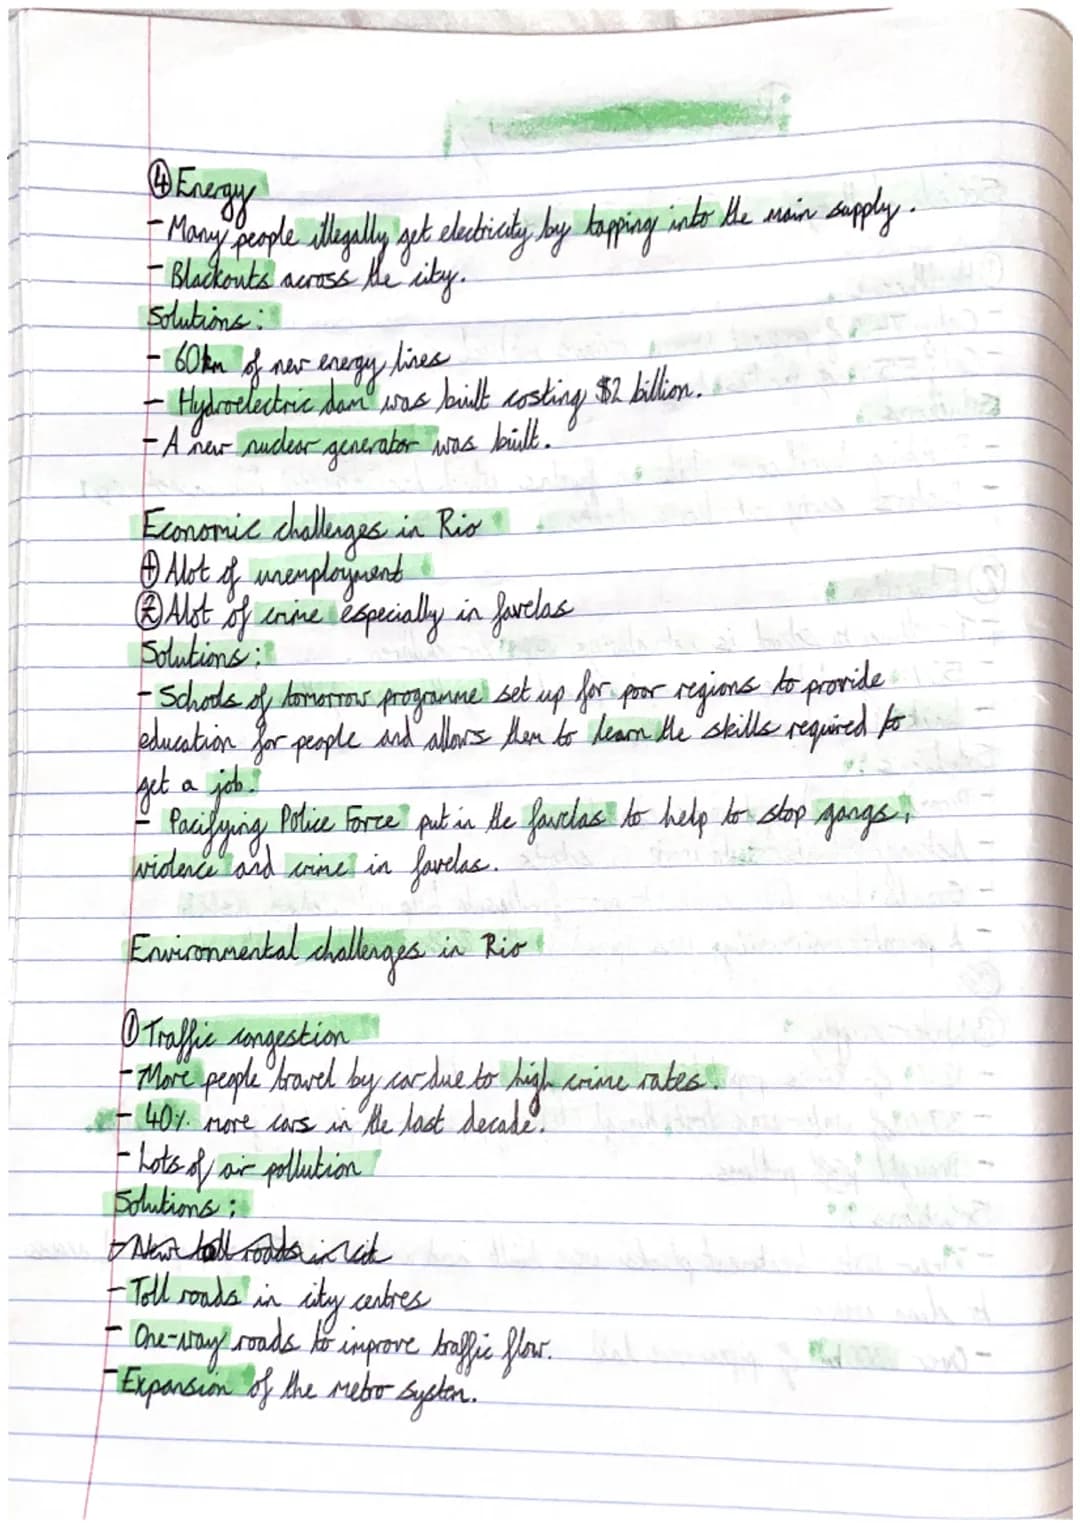 ④ Energy
- Many people illegally get electricity by tapping into the main supply.
- Blackouts across the city.
Solutions:
- 60km of new energy lines
- Hydroelectric dam was built costing $2 billion.
- A new nuclear generator was built.
Economic challenges in Rio
① Alot of unemployment
② Alot of crime especially in favelas
Solutions:
- Schools of tomorrow programme set up for poor regions to provide
education for people and allows them to learn the skills required to
get a job.
- Pacifying Police Force put in the favelas to help to stop gangs,
violence and crime in favelas.
Environmental challenges in Rio
① Traffic congestion
- More people travel by car due to high crime rates.
- 40% more cars in the last decade.
- Lots of air pollution
Solutions:
- New toll roads in cit
- Toll roads in city centres
- One-way roads to improve traffic flow.
- Expansion of the metro system.